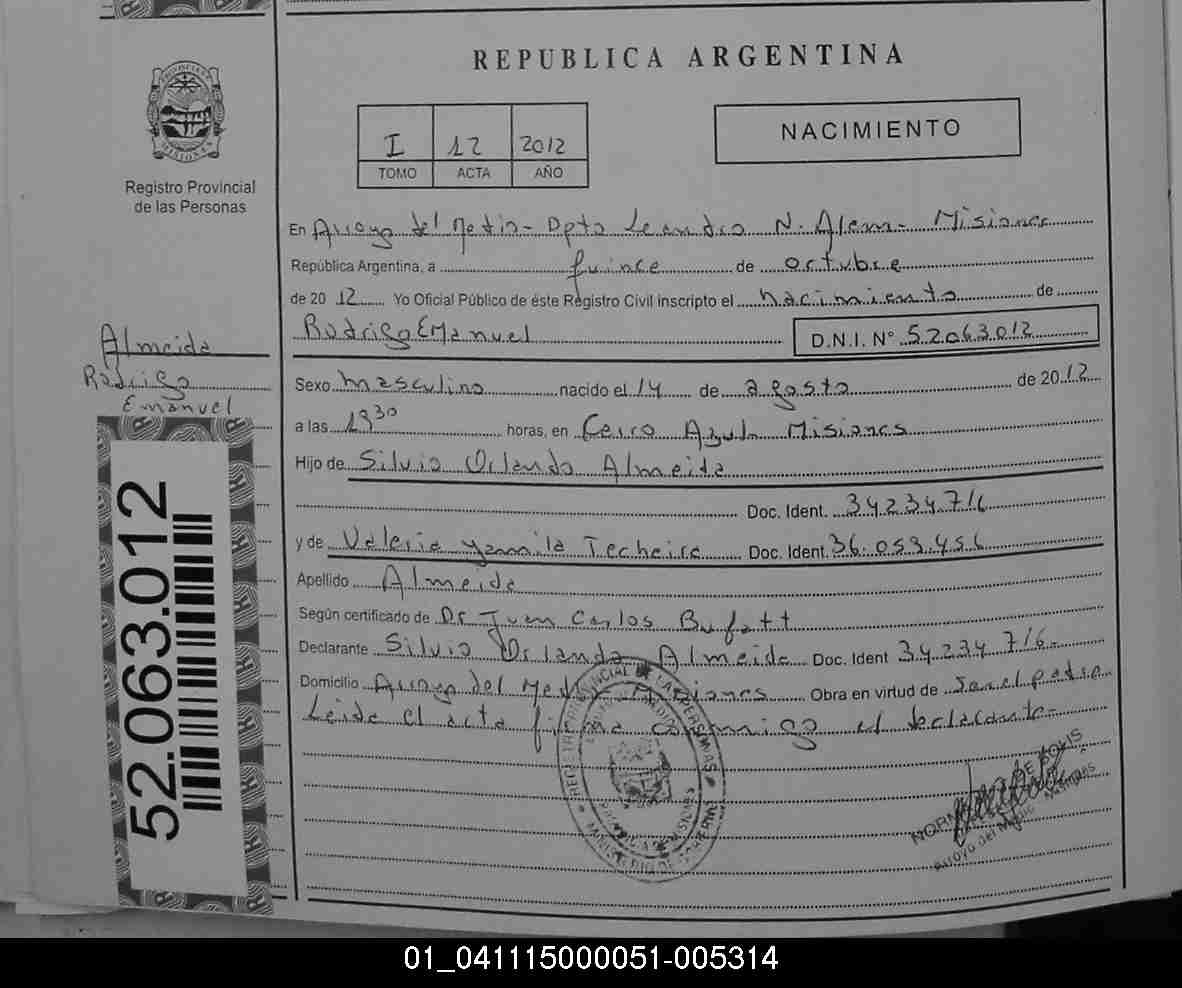 REPUBLICA ARGENTINA
Registro Provincial
de las Personas
I 12 2012
TOMO ACTA AÑO
NACIMIENTO
En Arroyo del Medio - Dpto Leandro N. Alem - Misiones
República Argentina, a quince de octubre
de 2012 Yo Oficial Público de éste Registro Civil inscripto el nacimiento de
Rodrigo Emanuel D.N.I. N° 52063012
Almeida
Rodrigo
Emanuel
Sexo masculino nacido el 14 de agosto de 2012
a las 19 30 horas, en Cerro Azul Misiones
Hijo de Silvio Orlando Almeida
Doc. Ident. 34234716
y de Valeria Yamila Techeira Doc. Ident. 36.053.456
Apellido Almeida
Según certificado de Dr Juan Carlos
Declarante Silvio Orlando Almeida Doc. Ident 34234716
Domicilio Arroyo del Medio Misiones Obra en virtud de ser el padre
Leida el acta firma conmigo el declarante -
52.063.012
Arroyo del Medio Misiones
01_041115000051-005314